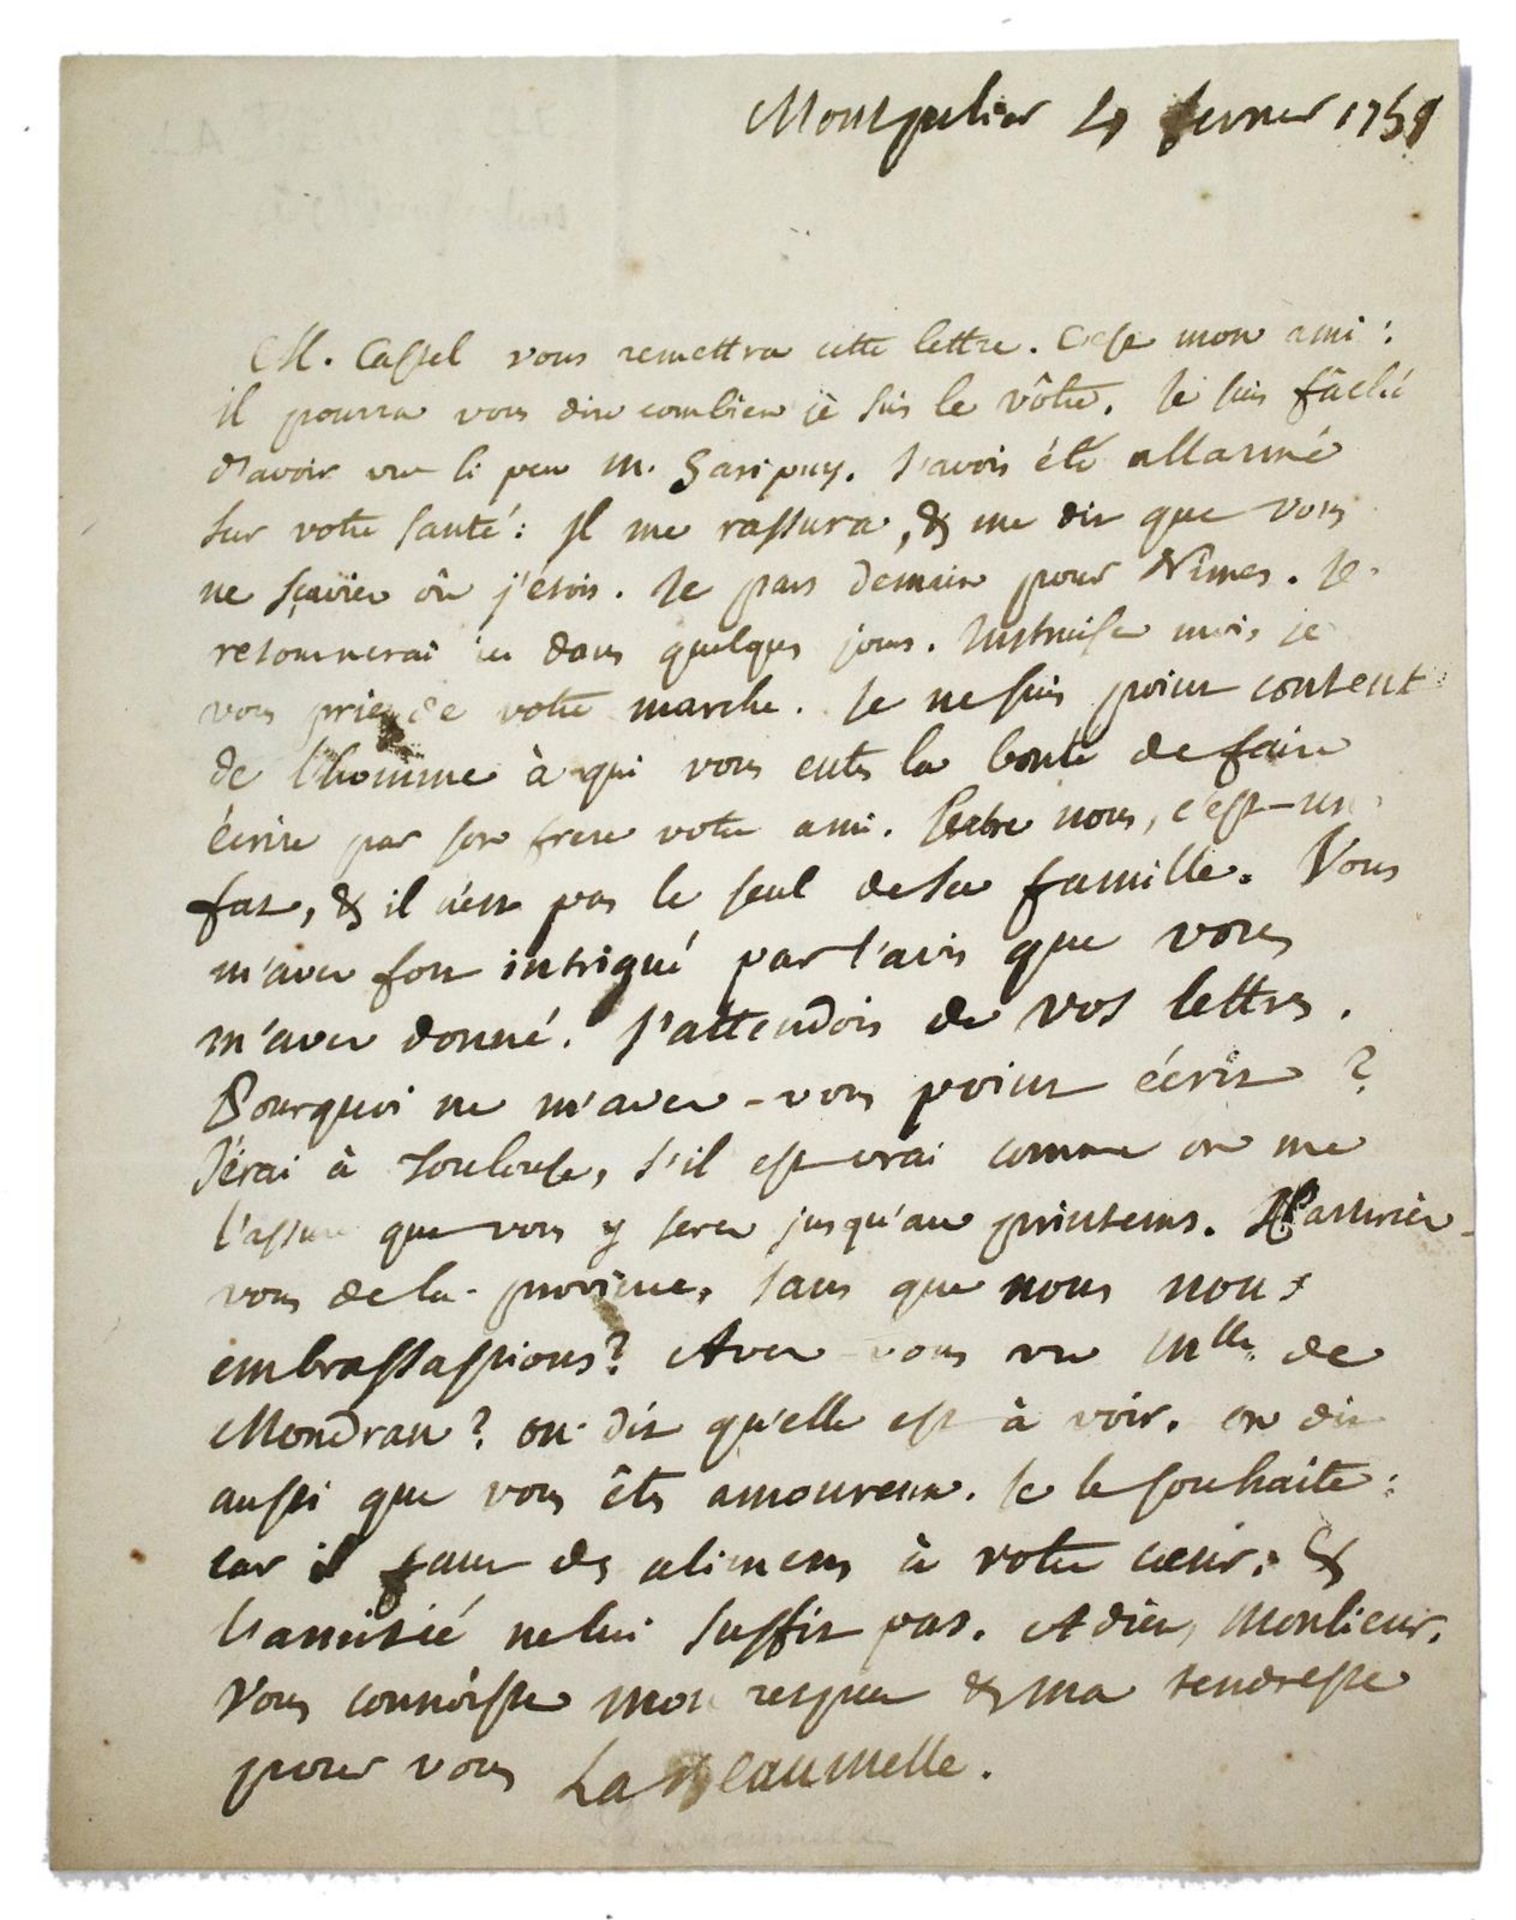 Montpelier 4 fevrier 1759
M. Cassel vous remettra cette lettre. C'est mon ami :
il pourra vous dire combien je suis le vôtre. Je suis fâché
d'avoir vu si peu M. Garipuy. J'avois été allarmé
sur votre santé : il me rassura, & me dit que vous
ne sçaviez où j'étois. Je pars demain pour Nîmes. Je
retournerai ici dans quelques jours. Instruisez moi, je
vous prie, de votre marche. Je ne suis point content
de l'homme à qui vous eutes la bonté de faire
écrire par son frere votre ami. Entre nous, c'est-un
fat, & il n'est pas le seul de sa famille. Vous
m'avez fort intrigué par l'avis que vous
m'avez donné. J'attendois de vos lettres.
Pourquoi ne m'avez-vous point écrit ?
J'irai à Toulouse, s'il est vrai comme on me
l'assure que vous y serez jusqu'au printems. Partiriez-
vous de la province, sans que nous nous
embrassassions? Avez-vous vu Mlle. de
Mondran ? on dit qu'elle est à voir. on dit
aussi que vous êtes amoureux. Je le souhaite :
car il faut des alimens à votre cœur : &
l'amitié ne lui suffit pas. Adieu, Monsieur.
Vous connoissez mon respect & ma tendresse
pour vous La Beaumelle.